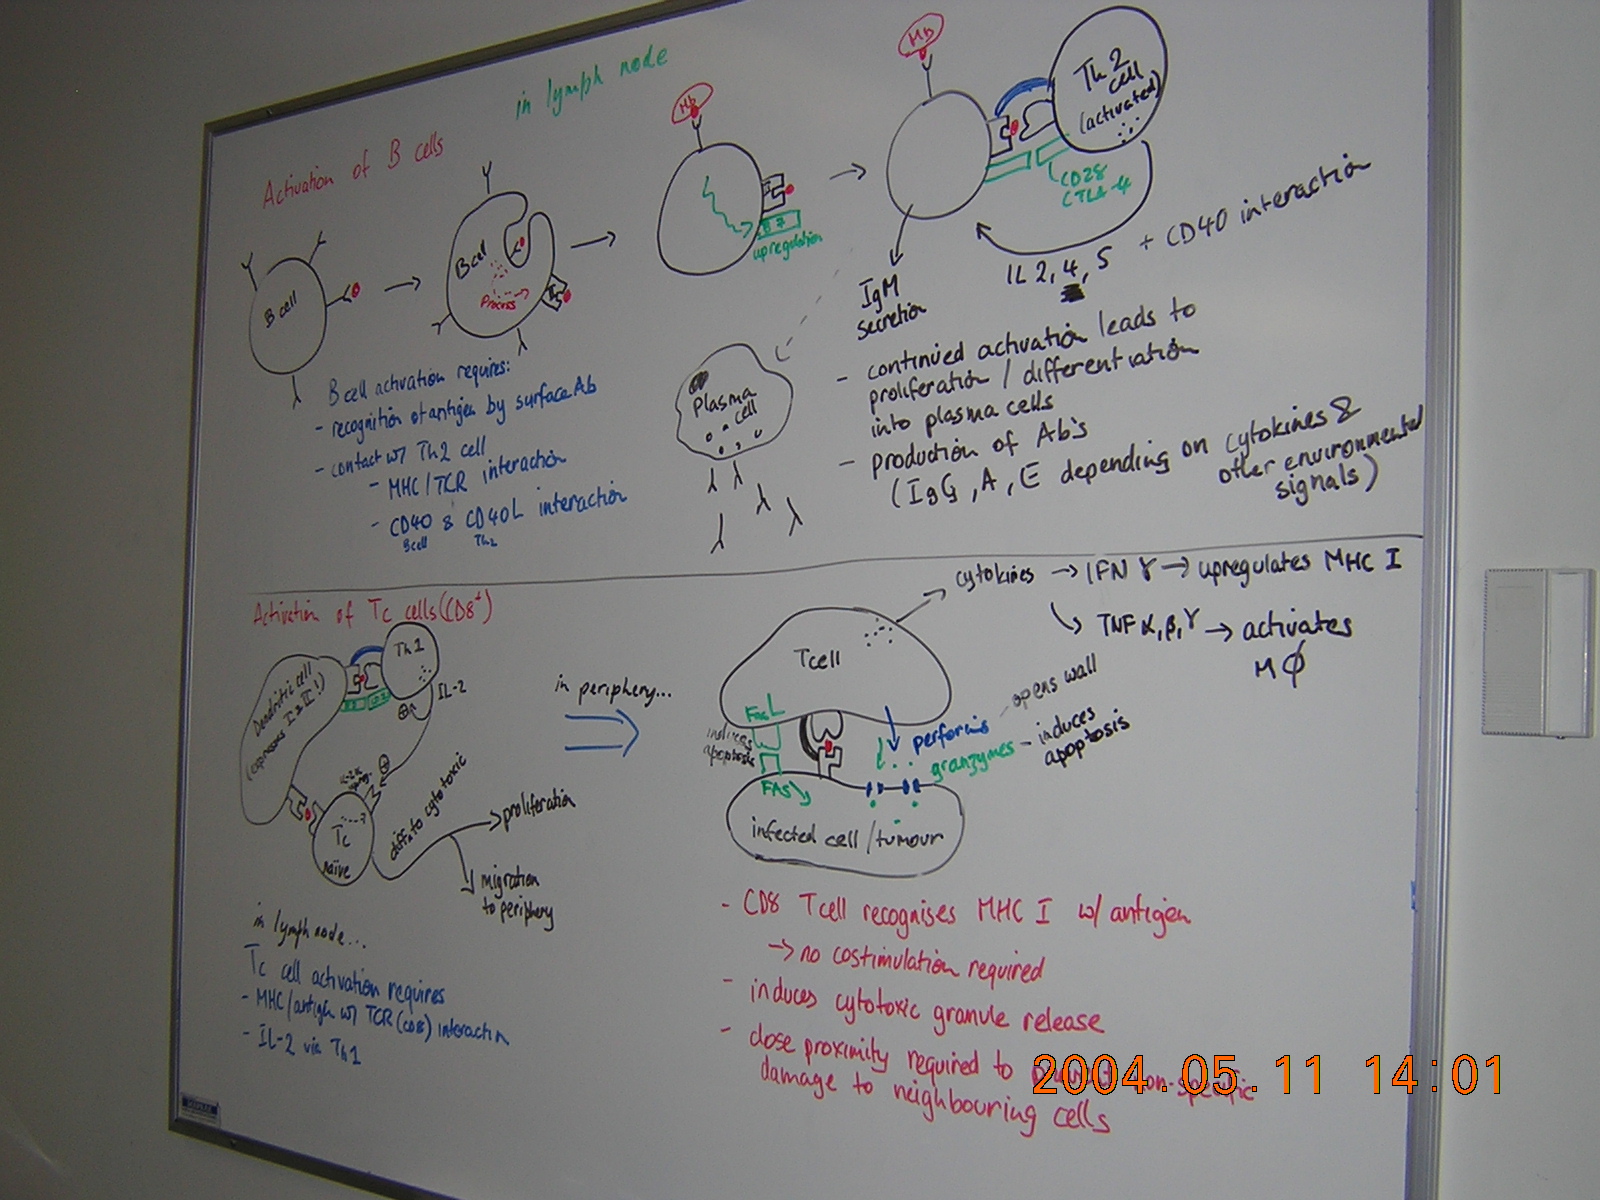 in lymph node
Activation of B cells
B cell
B cell
Process
II
Mb
II
B7
upregulation
Mb
Th2
cell
(activated)
CD28
CTLA-4
IL 2, 4, 5 + CD40 interaction
IgM
secretion
Plasma
cell
- continued activation leads to
proliferation / differentiation
into plasma cells
- production of Ab's
(IgG, A, E depending on cytokines &
other environmental
signals)
B cell activation requires:
- recognition of antigen by surface Ab
- contact w/ Th2 cell
- MHC/TCR interaction
- CD40 & CD40L interaction
Bcell Th2
Activation of Tc cells (CD8+)
Dendritic cell
(expresses I & II!)
Th1
IL-2
⊕
⊕
Tc
naïve
diff. to cytotoxic
proliferation
migration
to periphery
in lymph node...
Tc cell activation requires
- MHC/antigen w/ TCR (CD8) interaction
- IL-2 via Th1
in periphery...
Tcell
cytokines → IFN γ → upregulates MHC I
TNF α, β, γ → activates
MΦ
FasL
induces
apoptosis
FAS
performs - opens wall
granzymes - induces
apoptosis
infected cell / tumour
- CD8 Tcell recognises MHC I w/ antigen
→ no costimulation required
- induces cytotoxic granule release
- close proximity required to prevent non-specific
damage to neighbouring cells
2004.05.11 14:01